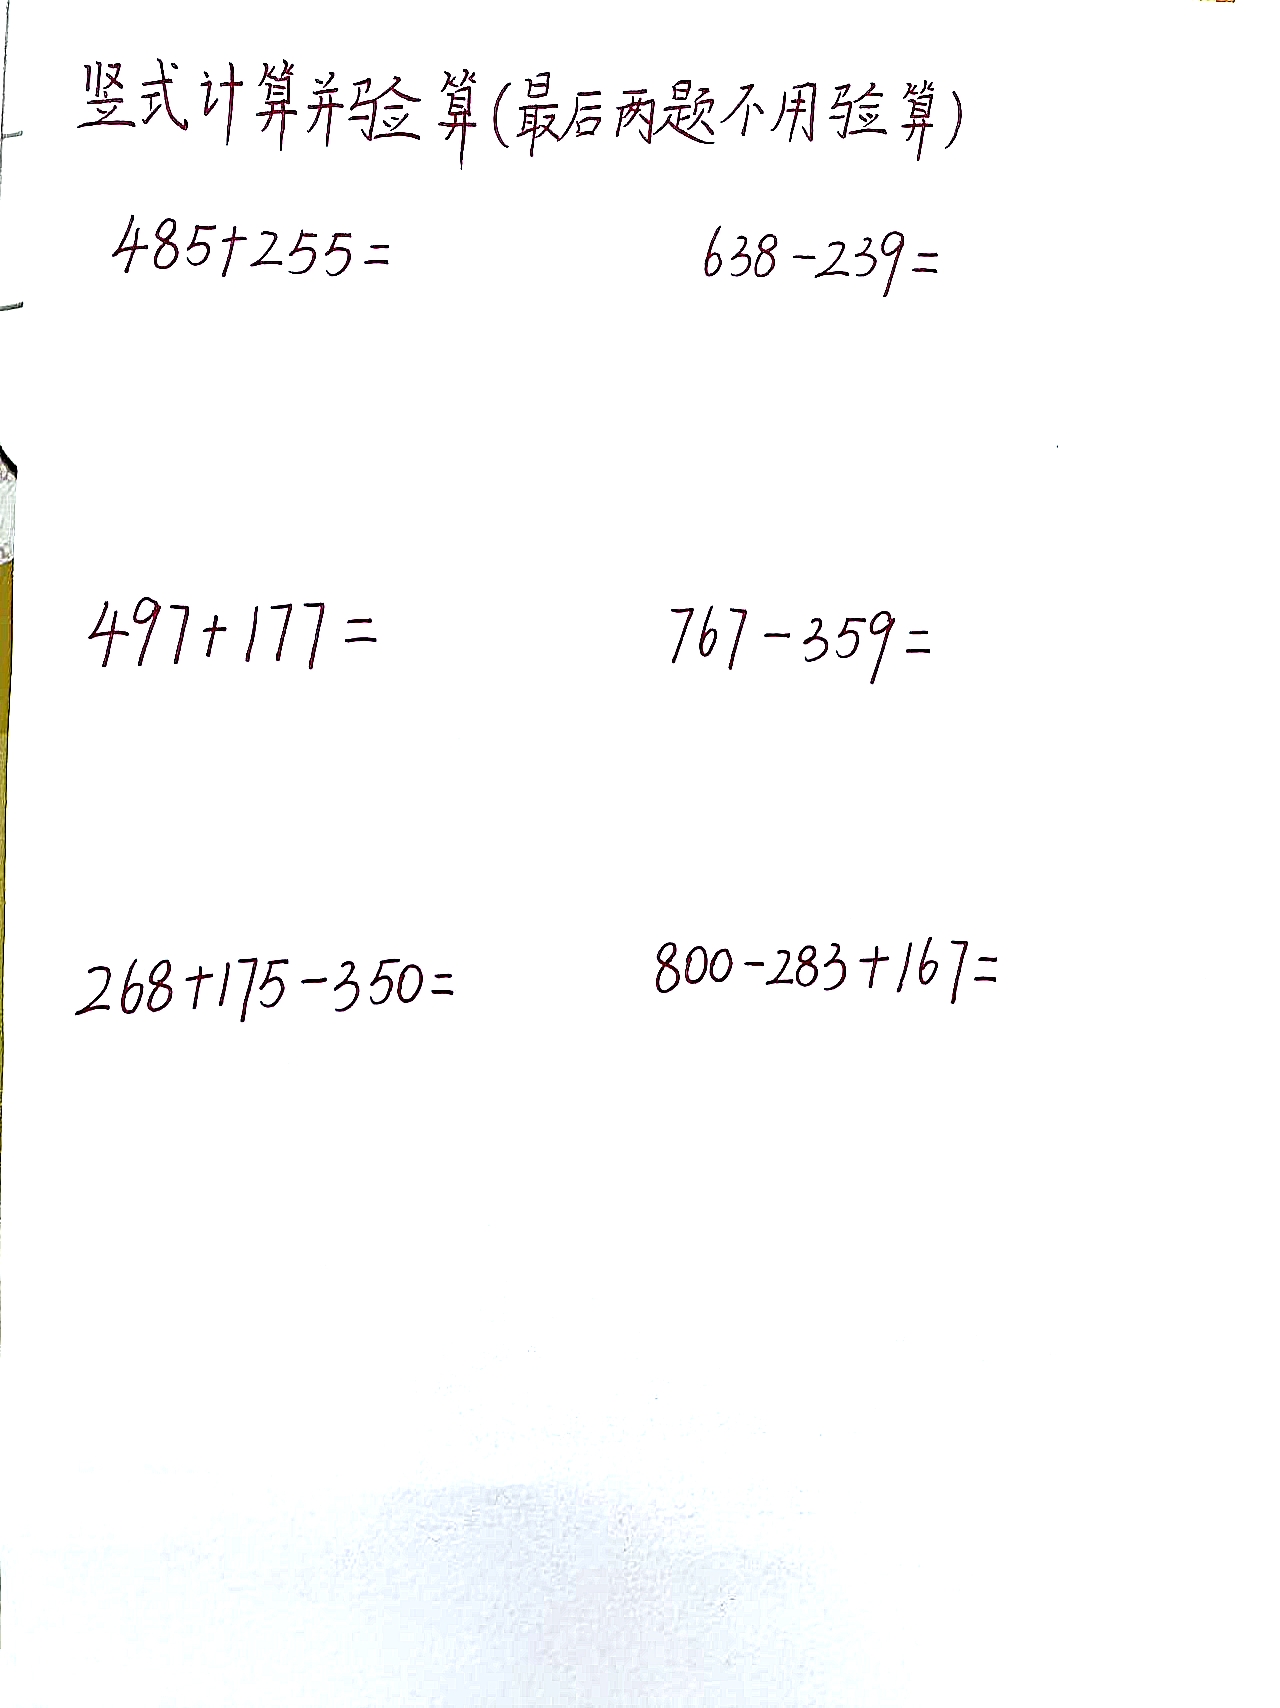 竖式计算并验算(最后两题不用验算)
485+255=
638-239=
497+177=
767-359=
268+175-350=
800-283+167=